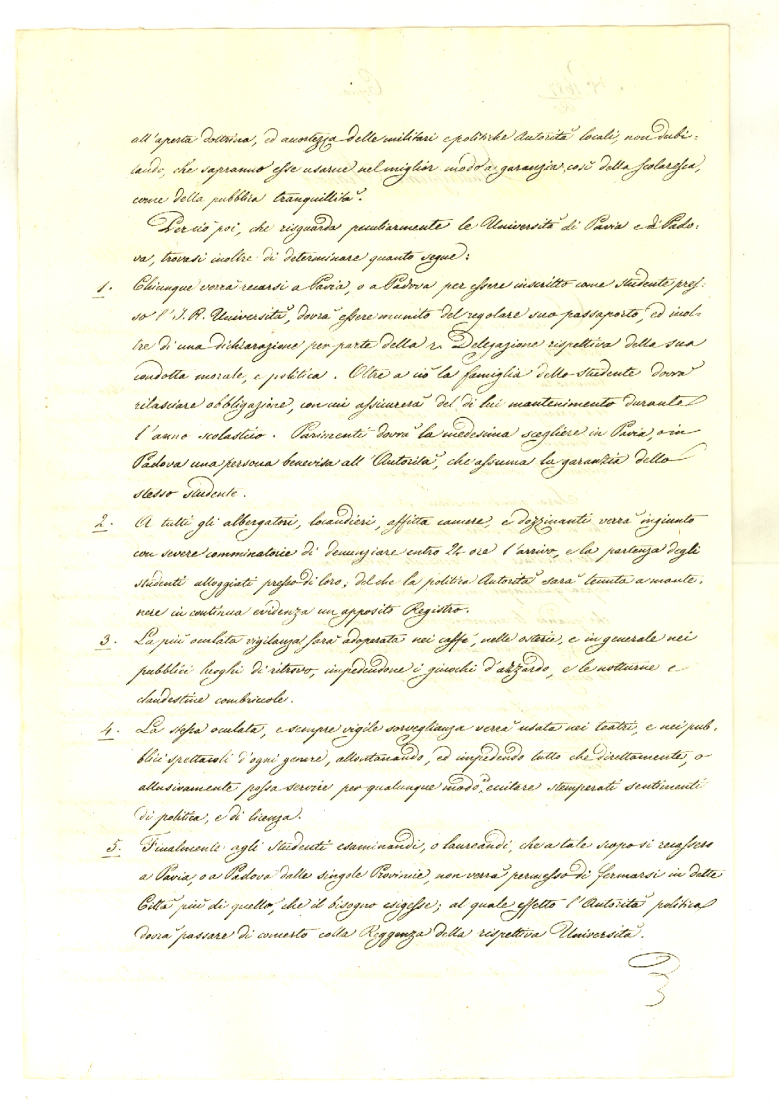 all'aperta dottrina, ed accortezza delle militari e politiche Autorità locali, non dubi-
tando, che sapranno esse usarne nel miglior modo a garanzia così della scolaresca,
come della pubblica tranquillità.
Per ciò poi, che risguarda peculiarmente le Università di Pavia e di Pado-
va, trovasi inoltre di determinare quanto segue:
1. Chiunque verrà recarsi a Pavia, o a Padova per essere inscritto come studente pres-
so l'I. R. Università, dovrà essere munito del regolare suo passaporto, ed inol-
tre di una dichiarazione per parte della r. Delegazione rispettiva della sua
condotta morale, e politica. Oltre a ciò la famiglia dello studente dovrà
rilasciare obbligazione, con cui assicurerà del di lui mantenimento durante
l'anno scolastico. Parimenti dovrà la medesima scegliere in Pavia, o in
Padova una persona benevisa all'Autorità, che assuma la garanzia dello
stesso studente.
2. A tutti gli albergatori, locandieri, affitta camere, e dozzinanti verrà ingiunto
con severe comminatorie di denunziare entro 24 ore l'arrivo, e la partenza degli
studenti alloggiati presso di loro; del che la politica Autorità sarà tenuta a mante-
nere in continua evidenza un apposito Registro.
3. La più oculata vigilanza sarà adoperata nei caffè, nelle osterie, e in generale nei
pubblici luoghi di ritrovo, impedendone i giuochi d'azzardo, e le notturne e
clandestine combriccole.
4. La stessa oculata, e sempre vigile sorveglianza verrà usata nei teatri, e nei pub-
blici spettacoli d'ogni genere, allontanando, ed impedendo tutto che direttamente, o
allusivamente possa servire per qualunque modo, eccitare stemperati sentimenti
di politica, e di licenza.
5. Finalmente agli studenti esaminandi, o laureandi, che a tale scopo si recassero
a Pavia, o a Padova dalle singole Provincie, non verrà permesso di fermarsi in dette
Città più di quello, che il bisogno esigesse; al quale effetto l'Autorità politica
dovrà passare di concerto colla Reggenza della rispettiva Università.